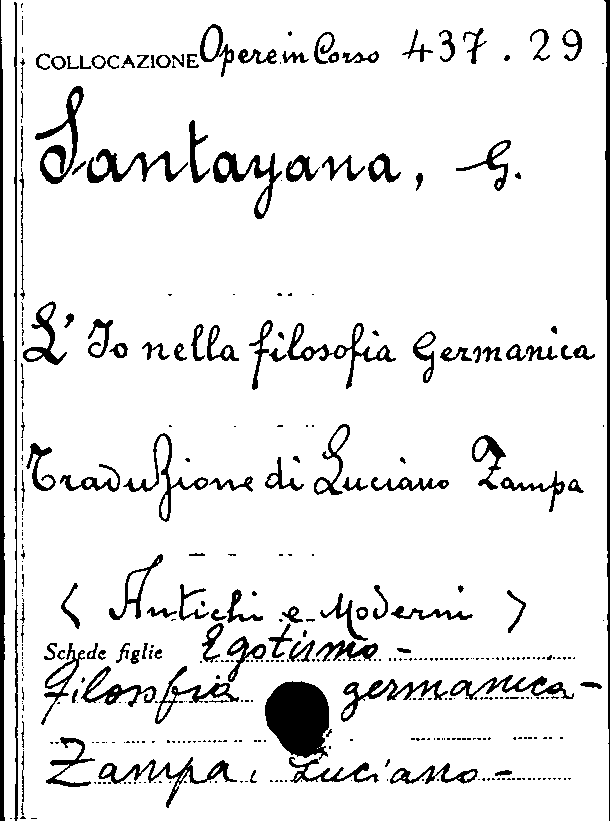 COLLOCAZIONE Opere in Corso 437.29
Santayana, G.
L'Io nella filosofia Germanica
Traduzione di Luciano Zampa
< Antichi e Moderni >
Schede figlie Egotismo -
Filosofia germanica -
Zampa, Luciano -